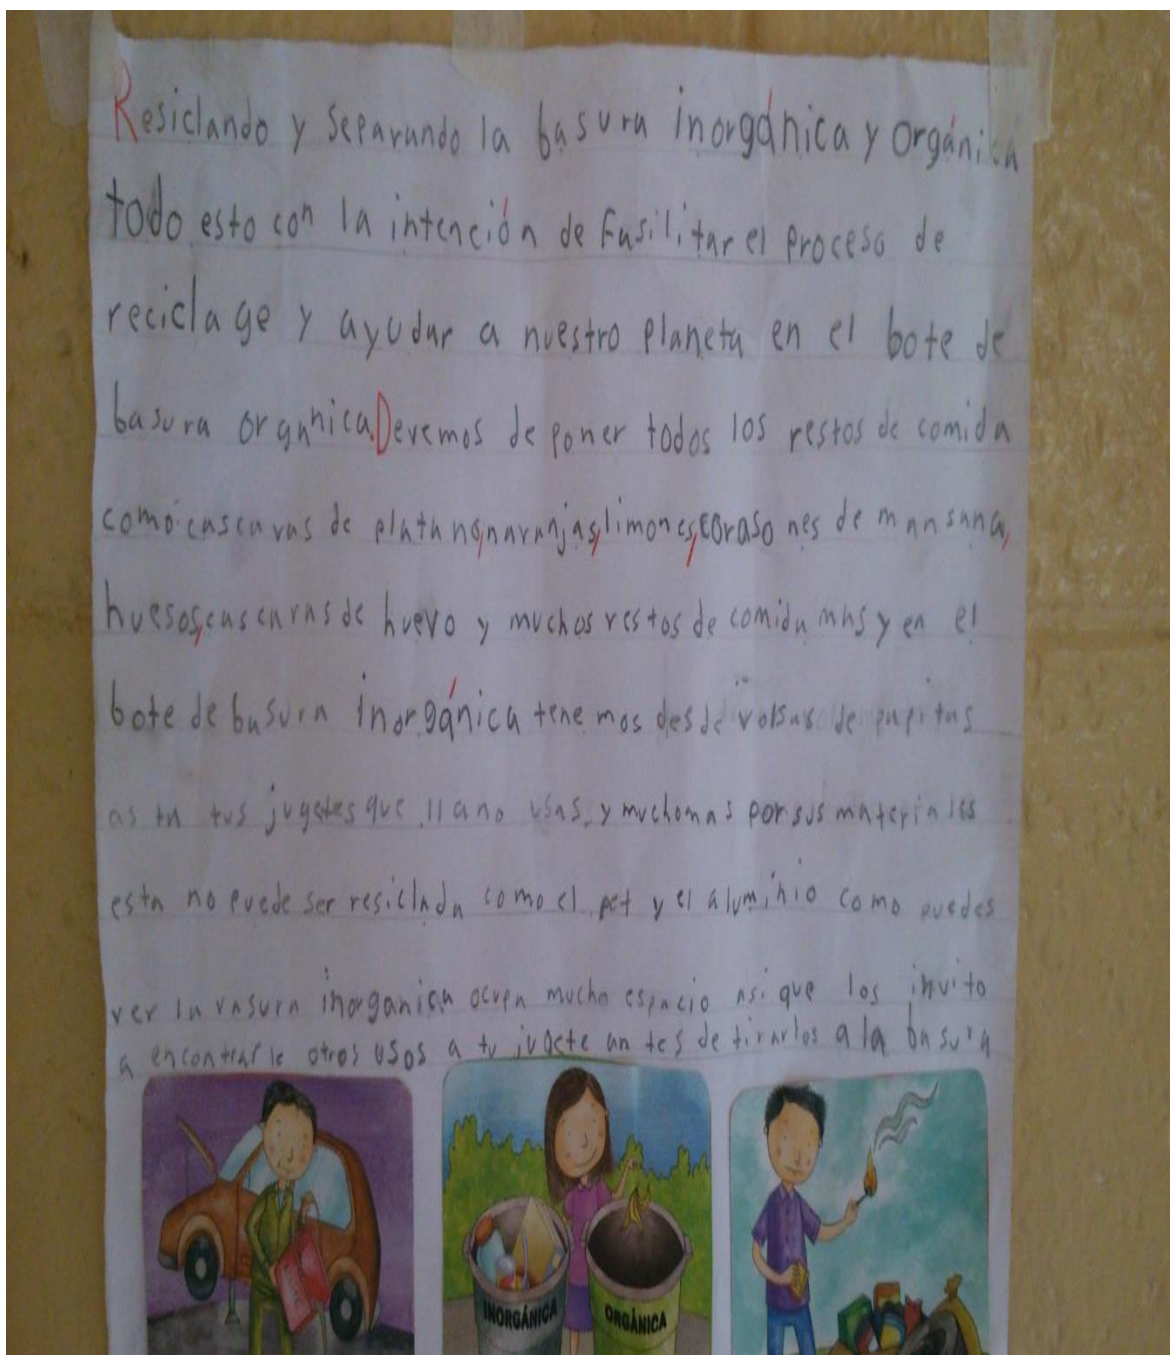 Resiclando y separando la basura inorgánica y orgánica
todo esto con la intención de fasilitar el proceso de
reciclage y ayudar a nuestro planeta en el bote de
basura organica.Devemos de poner todos los restos de comida
como cascaras de platano,naranjas,limones,corasones de mansana,
huesos,cascaras de huevo y muchos restos de comida mas y en el
bote de basura inorgánica tenemos desde volsas de papitas
asta tus jugetes que lla no usas, y mucho mas por sus materiales
esta no puede ser resiclada como el pet y el aluminio como puedes
ver la vasura inorganica ocupa mucho espacio asi que los invito
a encontrarle otros usos a tu jugete antes de tirarlos a la basura
INORGÁNICA ORGÁNICA